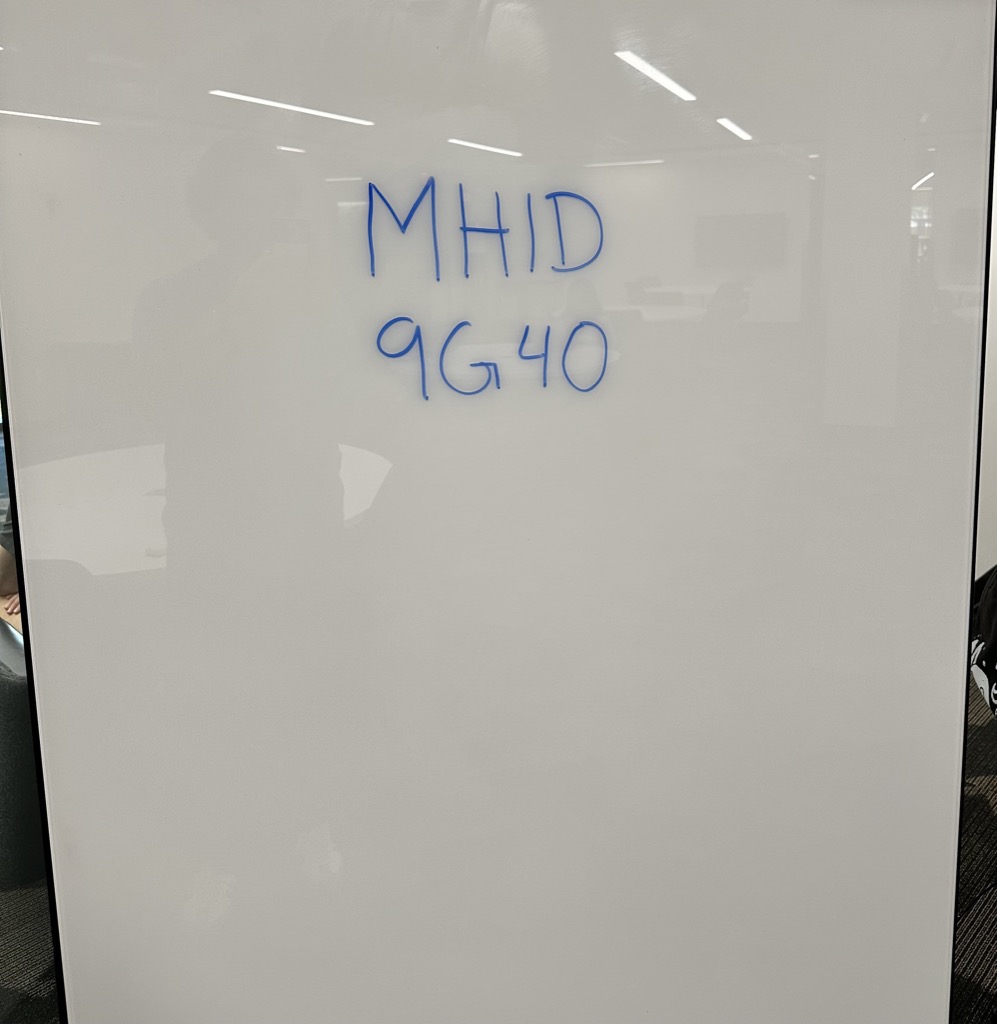 MHID
9G40